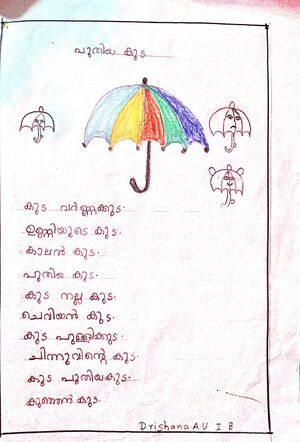 പുതിയ കുട
കുട വർണ്ണക്കുട.
ഉണ്ണിയുടെ കുട.
കാലൻ കുട.
പുതിയ കുട.
കുട നല്ല കുട.
ചെവിയൻ കുട.
കുട പുള്ളിക്കുട.
ചിന്നുവിന്റെ കുട.
കുട പുതിയകുട.
കുഞ്ഞൻ കുട.
Drishana A U I B